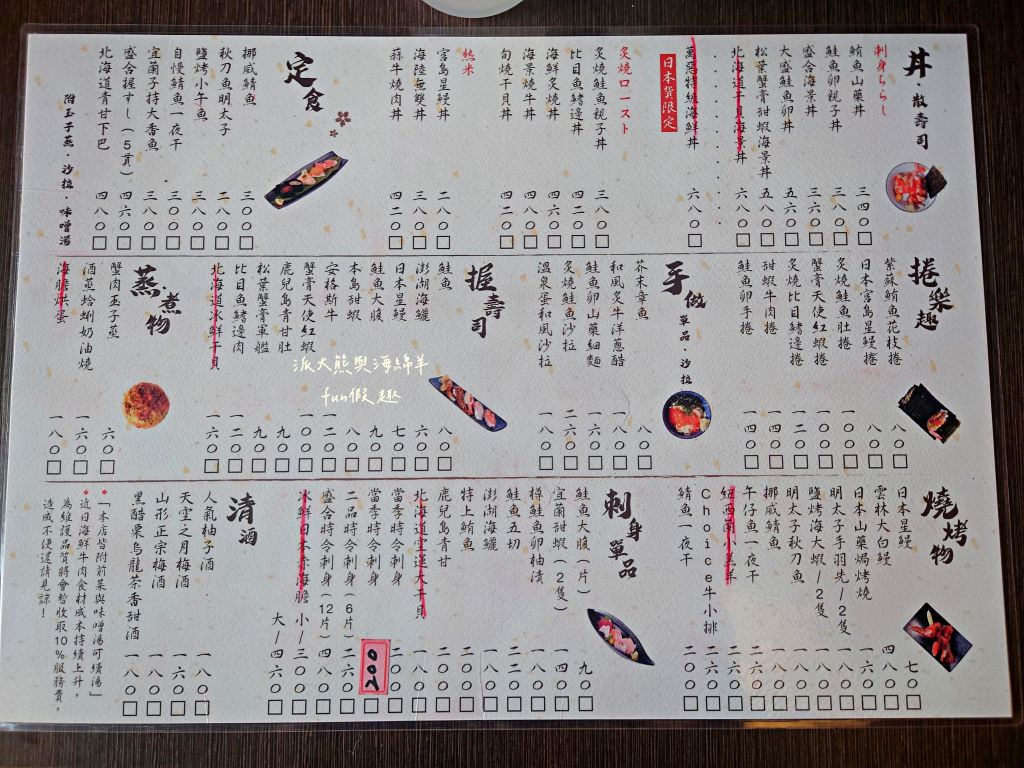 丼・散壽司
刺身ちらし
鮪魚山藥丼 三四〇
鮭魚卵親子丼 三八〇
盛合海景丼 三六〇
大盛鮭魚卵丼 五六〇
松葉蟹膏甜蝦海景丼 五八〇
北海道干貝海景丼 六八〇
日本貨限定
萬惡特級海鮮丼 六八〇
炙燒ロースト
炙燒鮭魚親子丼 三八〇
比目魚鰭邊丼 四二〇
海鮮炙燒丼 四六〇
海景燒牛丼 四八〇
旬燒干貝丼 四二〇
熱米
宮島星鰻丼 二八〇
海陸無雙丼 三八〇
蒜牛燒肉丼 四二〇
定食
挪威鯖魚 三〇〇
秋刀魚明太子 二八〇
鹽烤小午魚 三八〇
自慢鯖魚一夜干 三〇〇
宜蘭子持大香魚 三八〇
盛合握すし(5貫) 四六〇
北海道青甘下巴 四八〇
附玉子蒸・沙拉・味噌湯
捲樂趣
紫蘇鮪魚花枝捲 八〇
日本宮島星鰻捲 八〇
炙燒鮭魚肚捲 一〇〇
蟹膏天使紅蝦捲 一〇〇
炙燒比目魚鰭邊捲 一二〇
甜蝦牛肉捲 一四〇
鮭魚卵手捲 一四〇
手做 單品・沙拉
芥末章魚 八〇
和風炙牛洋蔥醋 一八〇
鮭魚卵山藥細麵 一六〇
炙燒鮭魚沙拉 二六〇
溫泉蛋和風沙拉 一八〇
握壽司
鮭魚 八〇
澎湖海鱺 六〇
日本星鰻 七〇
鮭魚大腹 九〇
本島甜蝦 八〇
安格斯牛 一二〇
蟹膏天使紅蝦 一〇〇
鹿兒島青甘肚 九〇
松葉蟹膏軍艦 九〇
比目魚鰭邊肉 一二〇
北海道冰鮮干貝 一六〇
蒸煮物
蟹肉玉子蒸 六〇
酒蒸蛤蜊奶油燒 一六〇
海膽烘蛋 一八〇
派大熊與海綿羊
fun假趣
燒烤物
日本星鰻 七〇
雲林大白鰻 四八〇
日本山藥焗烤燒 一六〇
明太子手羽先/2隻 一八〇
鹽烤海大蝦/2隻 一八〇
明太子秋刀魚 一八〇
挪威鯖魚 一八〇
午仔魚一夜干 二八〇
紐西蘭小羔羊 二六〇
Choice牛小排 二六〇
鯖魚一夜干 二〇〇
刺身單品
鮭魚大腹(片) 九〇
宜蘭甜蝦(2隻) 一四〇
樽鮭魚卵柚漬 一八〇
鮭魚五切 二二〇
澎湖海鱺 一八〇
特上鮪魚 二二〇
鹿兒島青甘 二〇〇
北海道空運大干貝
當季時令刺身 二〇〇
當季時令刺身 200
二品時令刺身(6片) 二六〇
盛合時令刺身(12片) 四六〇
冰鮮日本赤海膽 小/三〇〇
大/四六〇
清酒
人氣柚子酒 一八〇
天空之月梅酒 一六〇
山形正宗梅酒 一八〇
黑醋栗烏龍茶香甜酒 一八〇
•「本店皆附前菜與味噌湯可續湯」
•近日海鮮牛肉食材成本持續上升,
為維護品質將會暫收取10%服務費,
造成不便還請見諒!